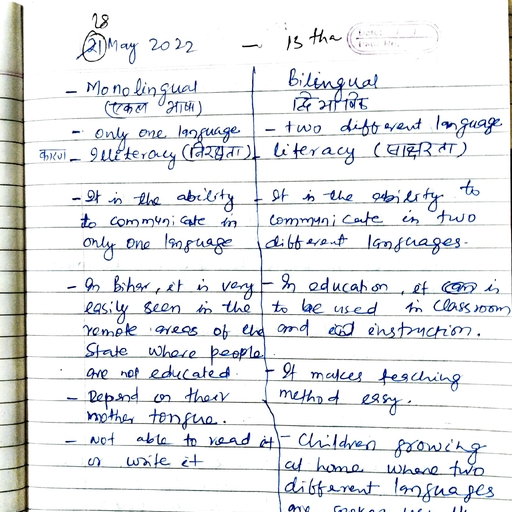 28
21 May 2022 — 13 tha
- Monolingual
(एकल भाषा)
- only one language
कारण - Illiteracy (निरक्षरता)
- It is the ability
to communicate in
only one language
- In Bihar, it is very
easily seen in the
remote areas of the
State where people
are not educated.
- Depend on their
mother tongue.
- Not able to read it
or write it
Bilingual
द्विभाषिक
- two different language
literacy (साक्षरता)
- It is the ability to
communicate in two
different languages.
- In education, it is
to be used in classroom
and instruction.
- It makes teaching
method easy.
- Children growing
at home where two
different languages
are